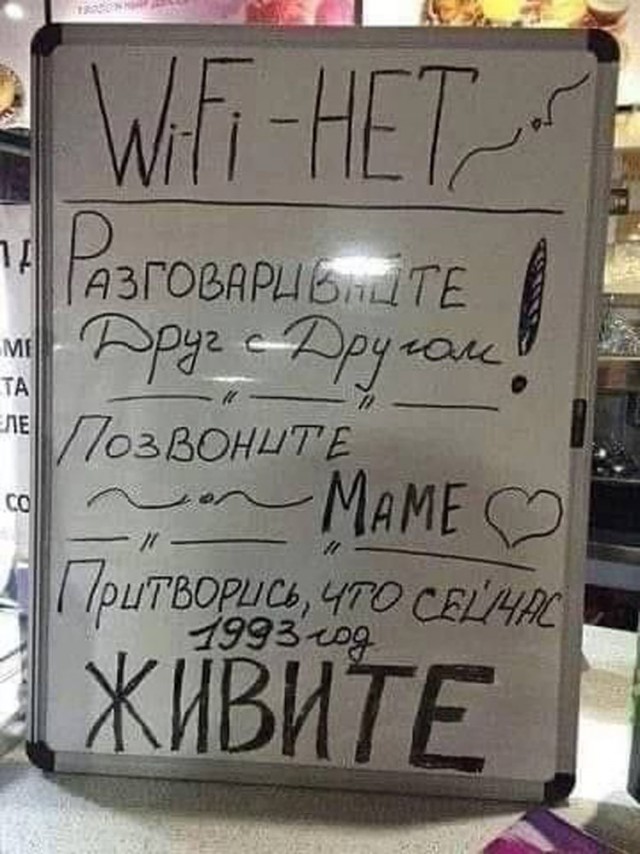 Wi-Fi - НЕТ
РАЗГОВАРИВАЙТЕ
Друг с Другом!
ПОЗВОНИТЕ
МАМЕ
ПРИТВОРИСЬ, ЧТО СЕЙЧАС
1993 год
ЖИВИТЕ